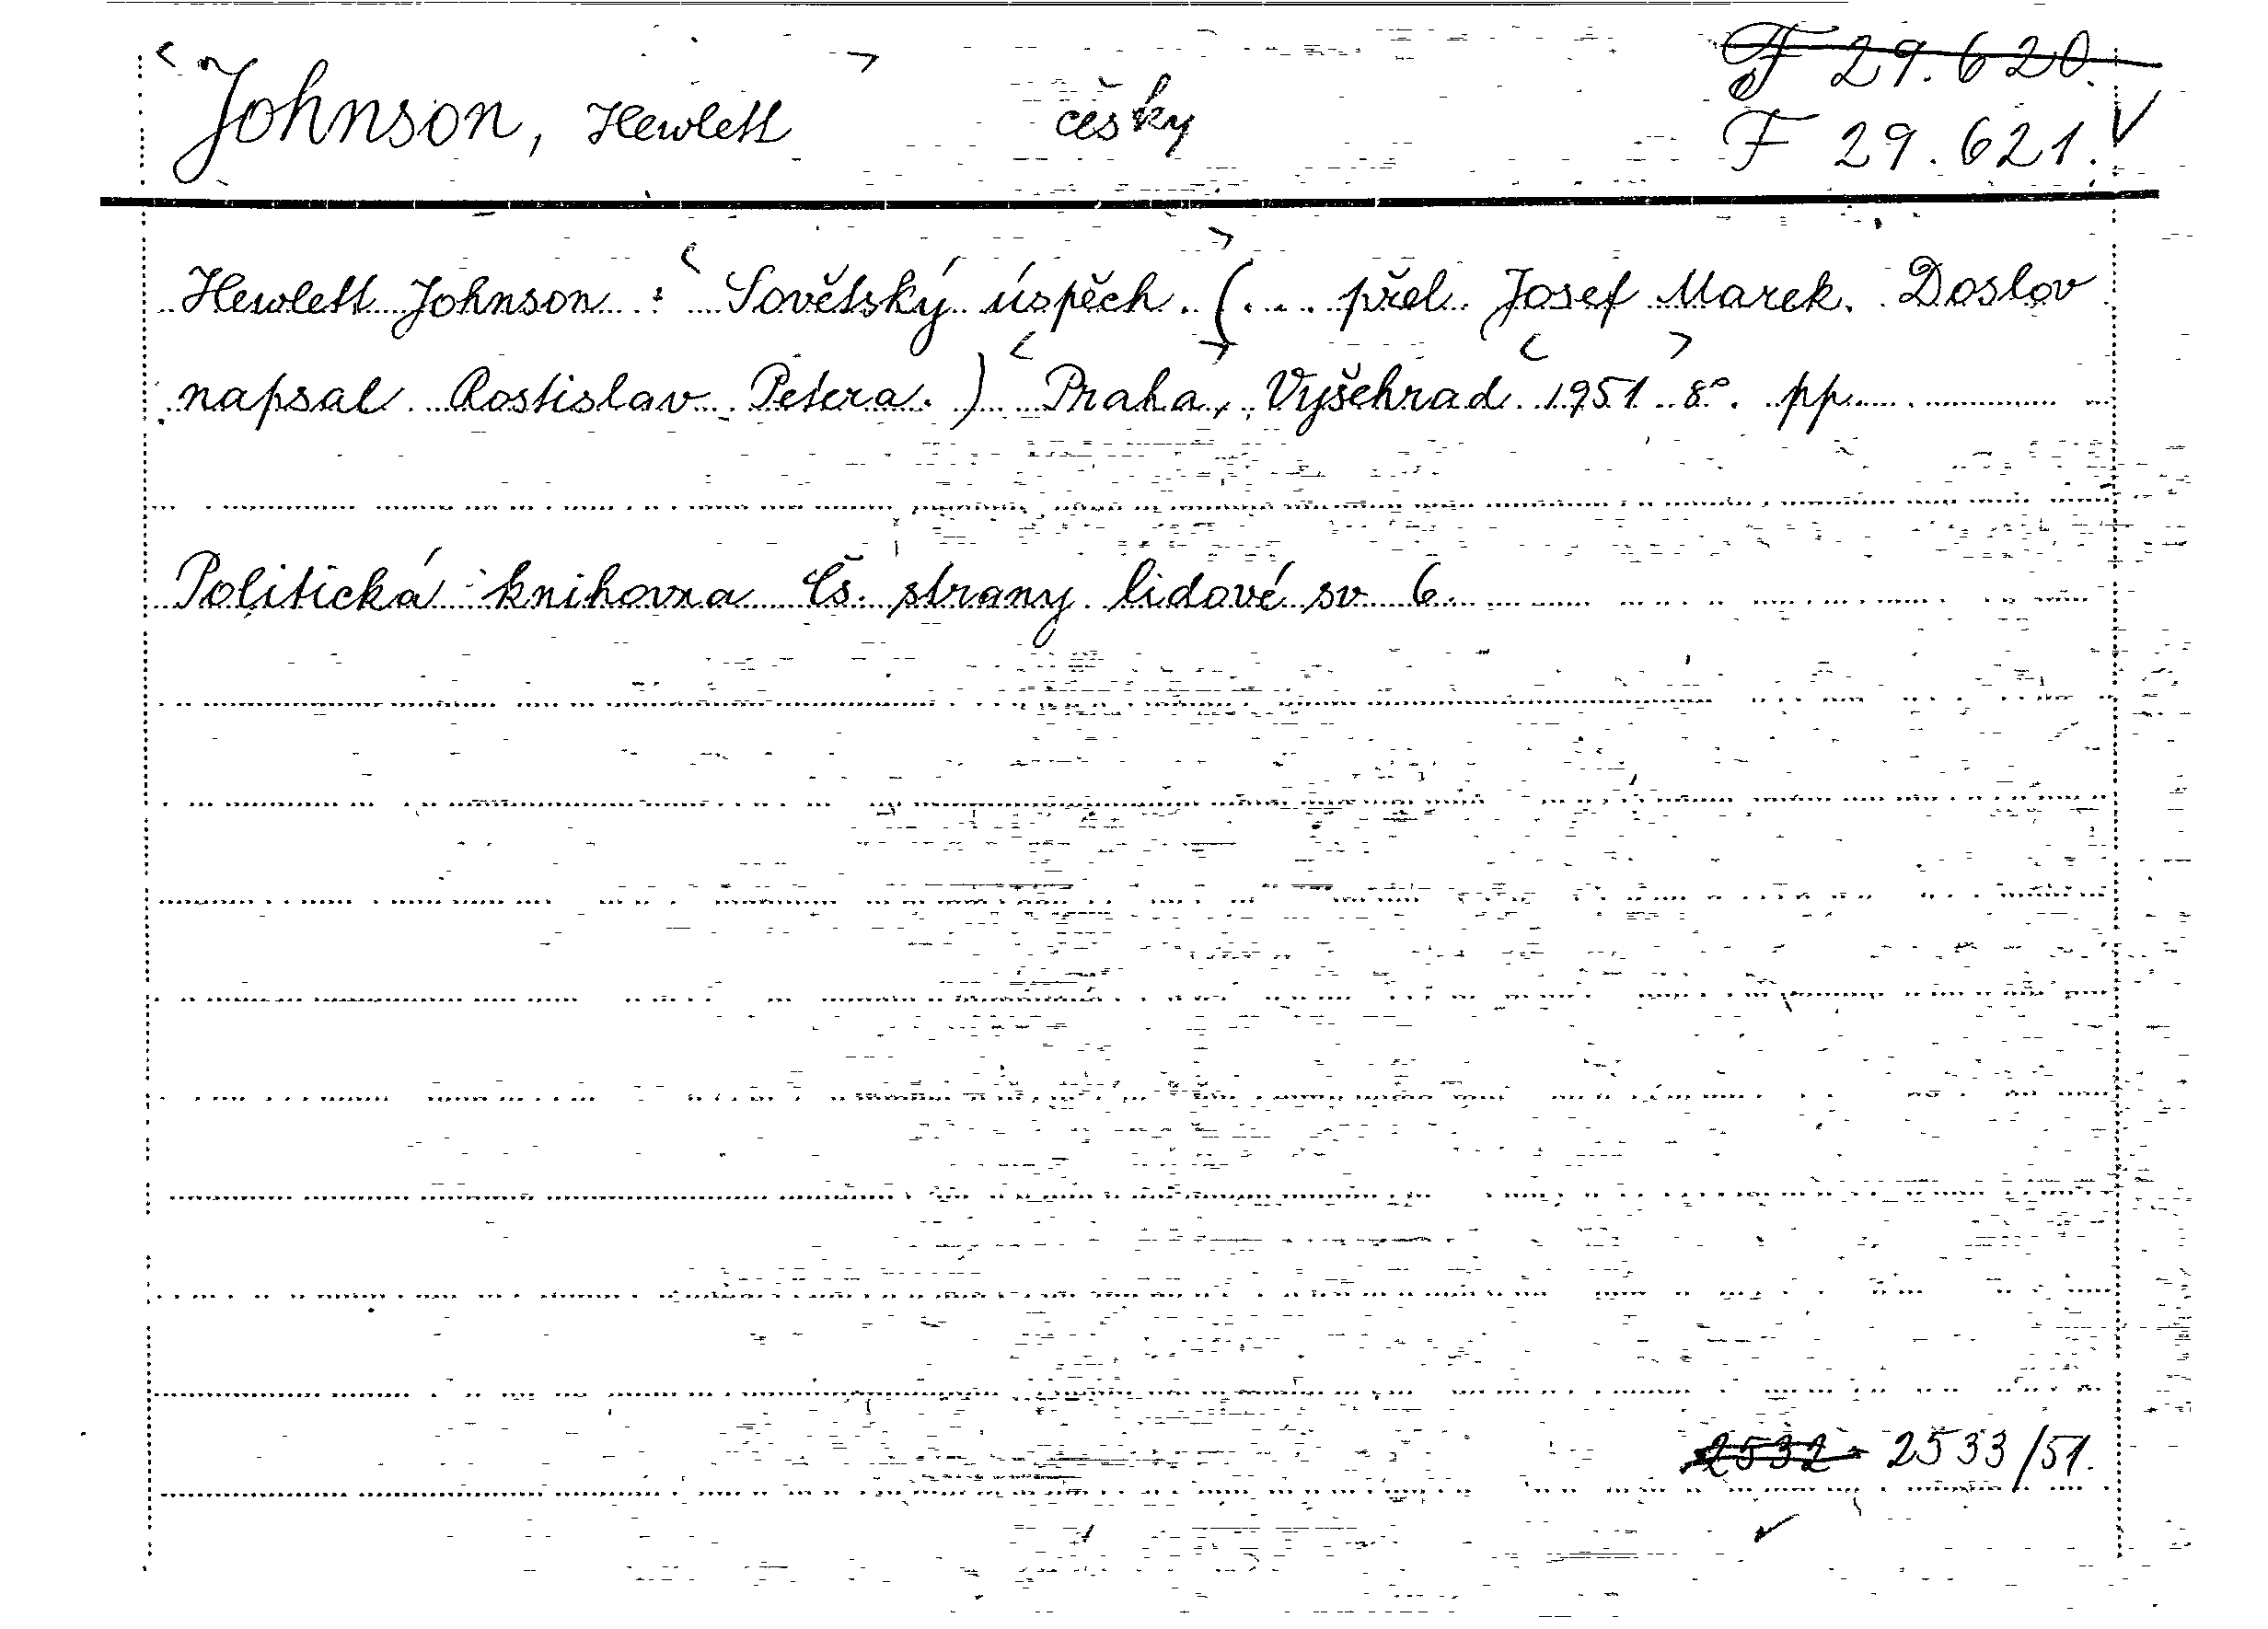 Johnson, Hewlett česky F 29.620.
F 29.621. ✓
Hewlett Johnson : Sovětský úspěch. (... přel. Josef Marek. Doslov
napsal Rostislav Petera.) Praha, Vyšehrad 1951 8°. pp.
Politická knihovna Čs. strany lidové sv. 6.
2532 2533/51.